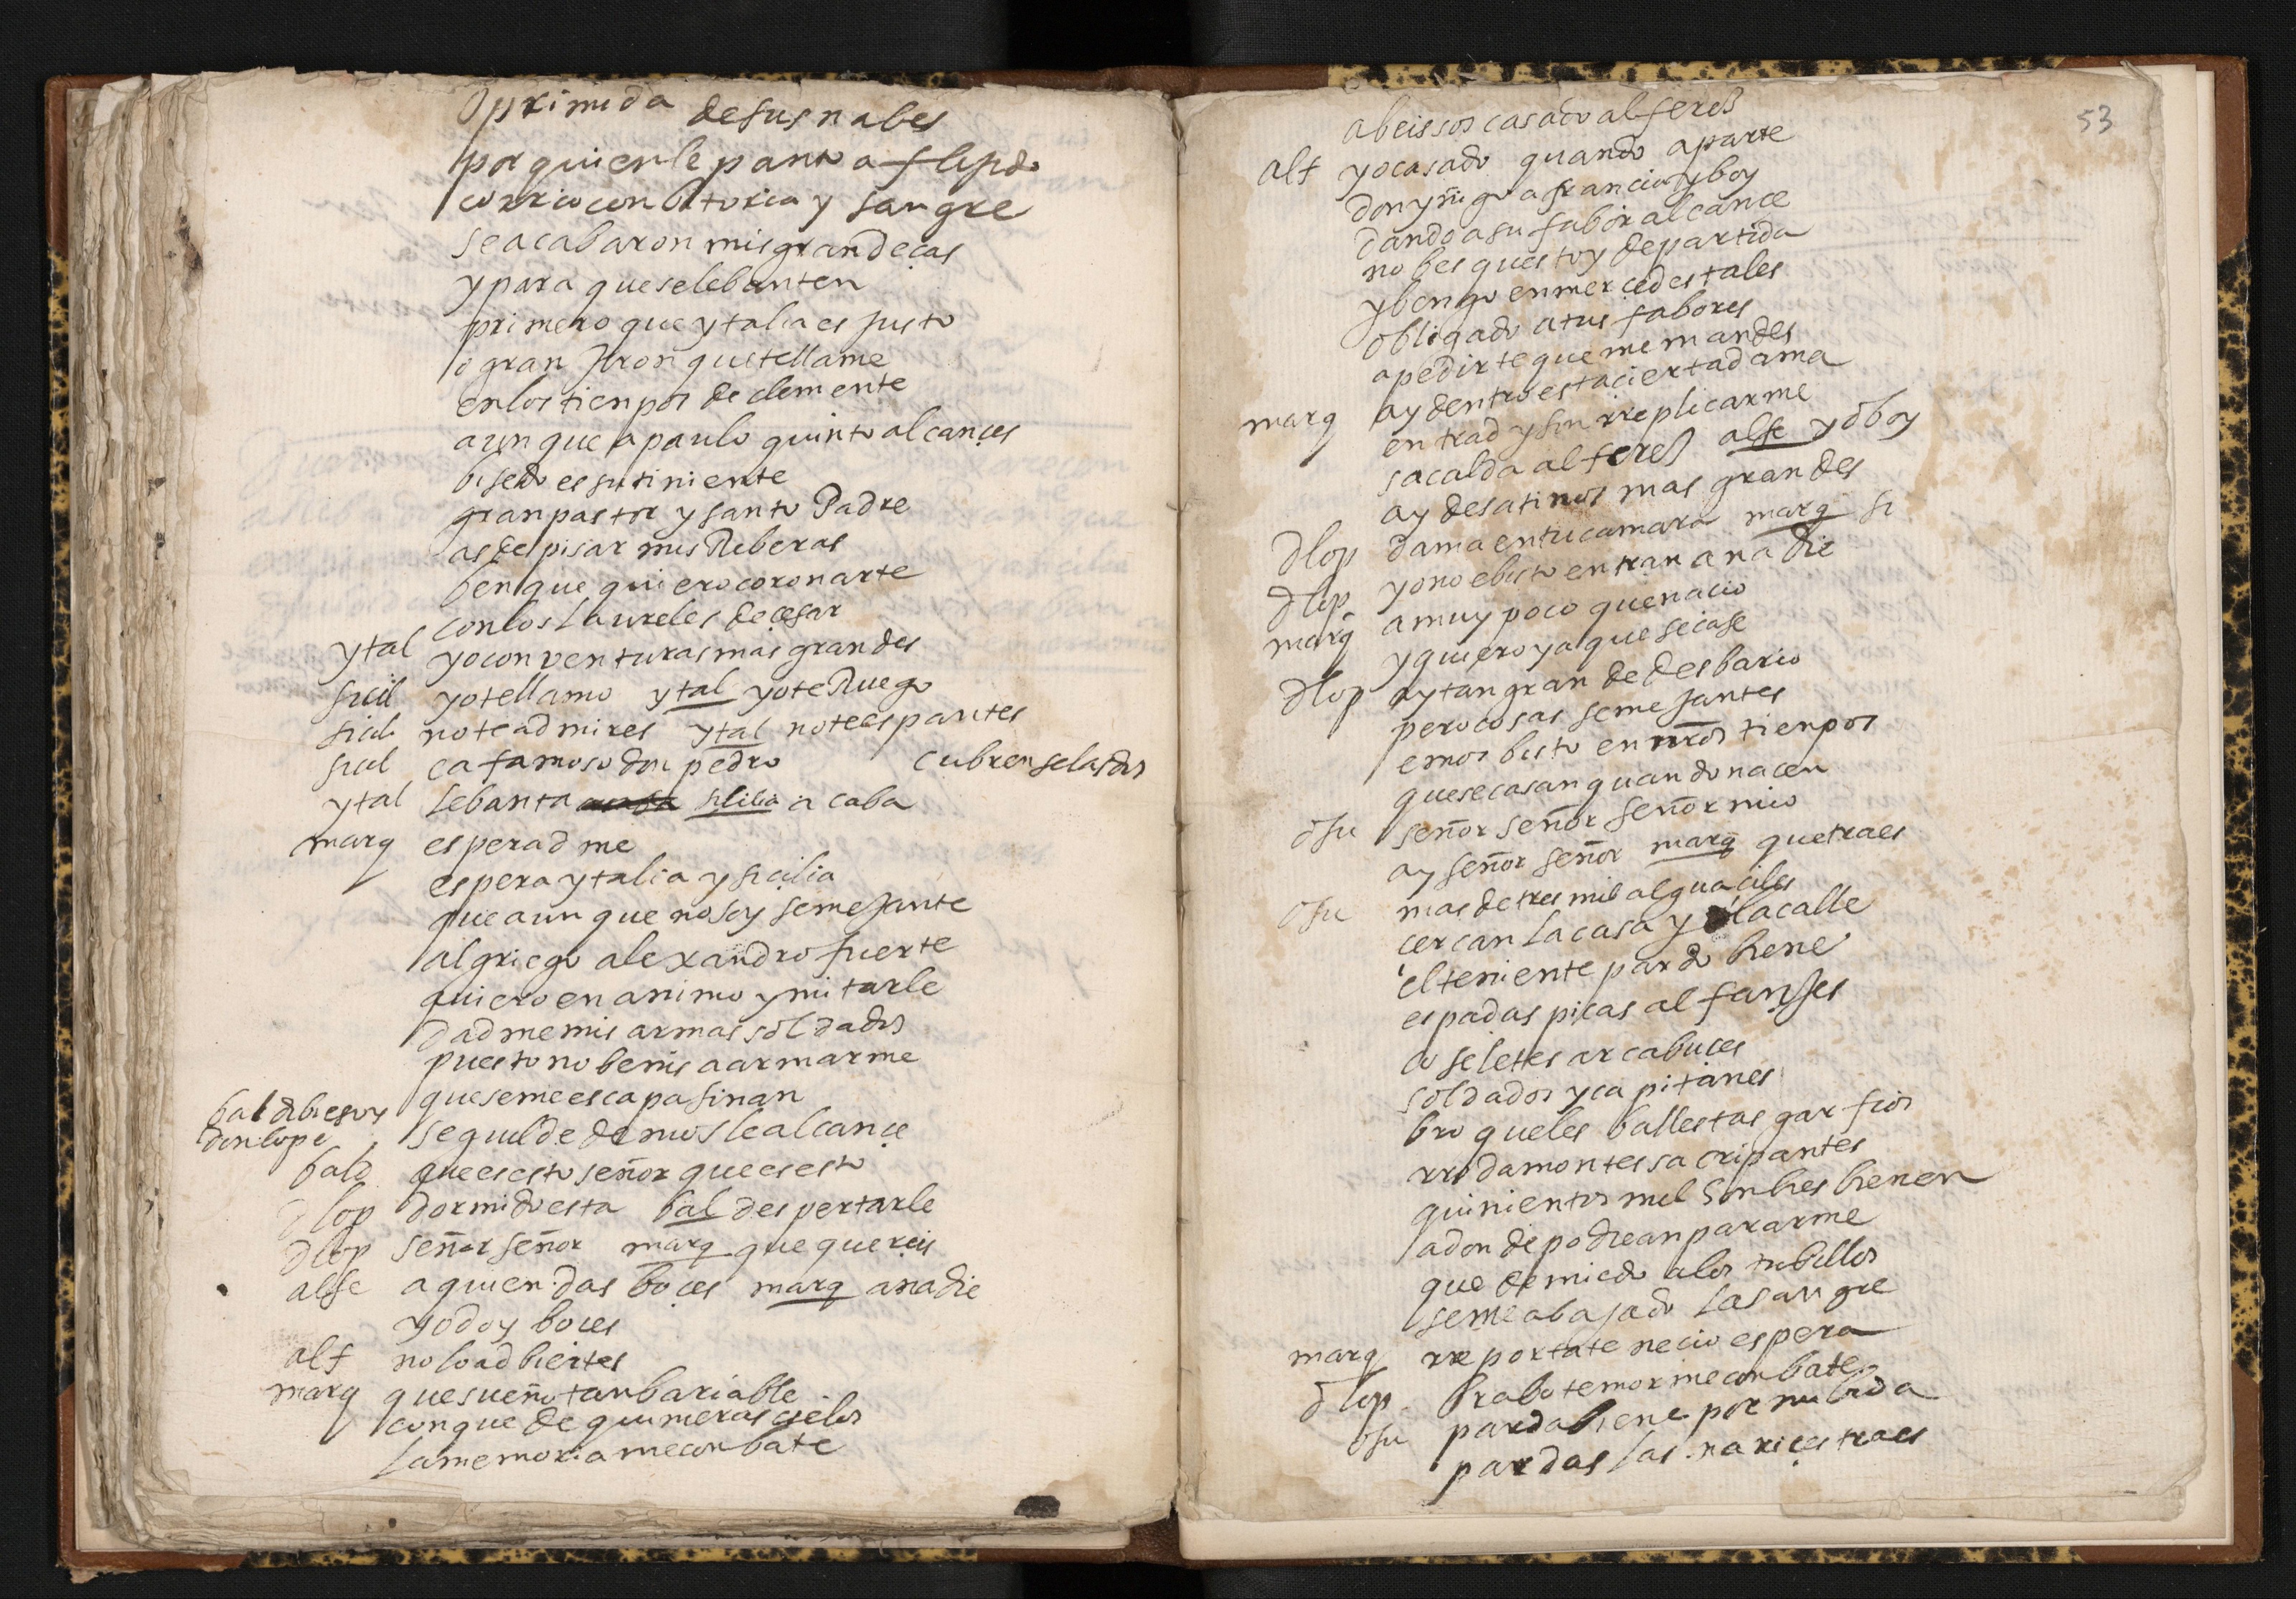 oprimida de sus nabes
por quien lepanto aflijido
corrio con bitoria y sangre
se acabaron mis grandeças
y para que se lebanten
primero que ytalia es justo
o gran jiron que te llame
en los tienpos de clemente
aunque a paulo quinto alcançes
gran pastor y santo Padre
as de pisar mis Riberas
ben que quiero coronarte
con los laureles de çesar
ytal yo con venturas mas grandes
sicil yo te llamo ytal yo te Ruego
sicil no te admires ytal no te espantes
sicil ea famoso don pedro cubrense las dos
ytal lebanta siçilia acaba
marq esperadme
espera ytalia y siçilia
que aunque no soy semejante
al griego alexandro fuerte
quiero en animo ymitarle
dadme mis armas soldados
puesto no benis a armarme
que se me escapa sinan
baldibiesso y
don lope seguilde demosle alcançe
bald que es esto señor que es esto
dlop dormido esta bal despertarle
dlop señor señor marq que quereis
alfe a quien das boçes marq a nadie
yo doy boçes
alf no lo adbiertes
marq que sueño tan bariable
con que de quimeras çielos
la memoria me conbate
53
abeissos casado alfereß
alf yo casado quando aparte
don yñigo a françia y boy
dando a su fabor alcançe
no bes questoy de partida
y bengo en merçedes tales
obligado a tus fabores
a pedirte que me mandes
marq ay dentro esta çierta dama
entrad y sin rreplicarme
sacalda alfereß alfe yo boy
ay desatinos mas grandes
dlop dama en tu camara marq si
dlop yo no e bisto entrar a nadie
marq a muy poco que naçio
y quiero ya que se case
dlop ay tan grande desbario
pero cosas semejantes
emos bisto en nros tienpos
que se casan quando naçen
osu señor señor señor mio
ay señor señor marq que traes
osu mas de tres mil alguaçiles
çercan la casa y la calle
el teniente pardo biene
espadas picas alfanjes
coseletes arcabuçes
soldados y capitanes
broqueles ballestas garfios
rrodamontes sacripantes
quinientos mil honbres bienen
adonde podrean pararme
que de miedo a los tubillos
se me a bajado la sangre
marq rreportate neçio espera
dlop brabo temor me conbate
osu pardo biene por mi bida
pardas las nariçes traes